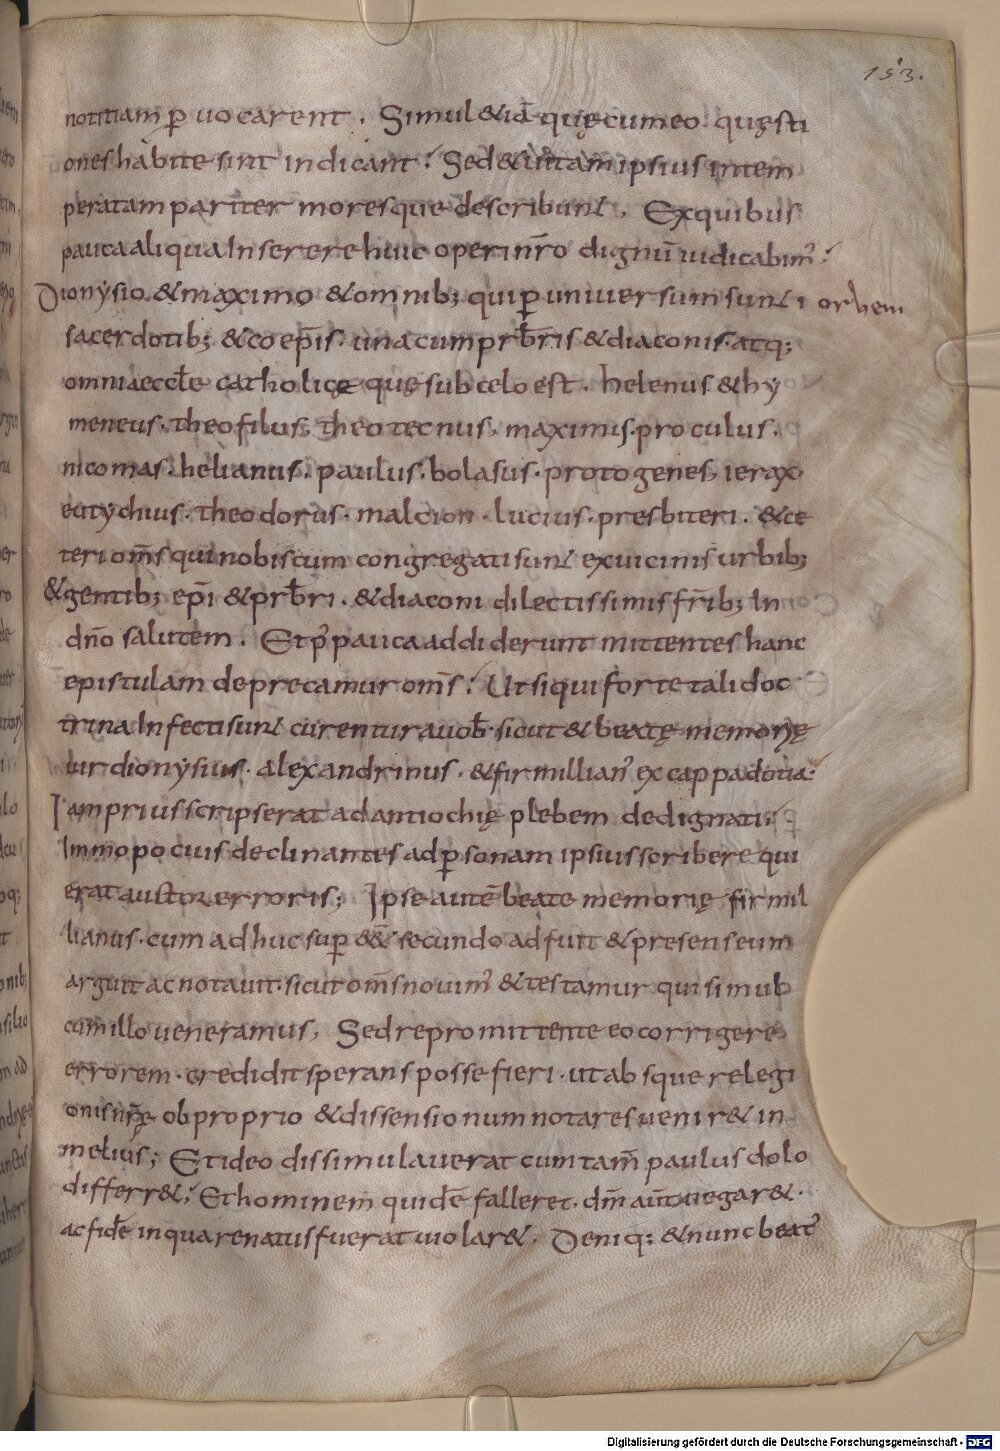 153.
notitiam ꝑ uocarent. Simul &iā quę cum eo quęsti
ones habite sint indicant; Sed & uitam ipsius intem
peratam pariter moresque describunt. Ex quibus
pauca aliqua Inserere huic operi nr̄o dignū iudicabim᾽;
Dionysio & maximo & omnib; qui ꝑ uniuersum sunt orbem
sacerdotib; & coep̄is. una cum prb̄ris & diaconis. atq;
omni aeccl̄e catholicę quę sub celo est. helenus & hy
meneus. theofilus, theotecnus, maximus. proculus.
nicomas. helianus. paulus. bolasus. protogenes, ierax
eutychius. theodorus. malcion. lucius. presbiteri. & ce
teri om̄s qui nobiscum congregati sunt ex uicinis urbib;
& gentib; ep̄i & prb̄ri. & diaconi dilectissimis fr̄ib; In
dn̄o salutem. Et p᾽ pauca addiderunt mittentes hanc
epistulam deprecamur om̄s; Ut si qui forte tali doc
trina Infecti sunt curentur a uob̄. sicut & beatę memorię
uir dionysius. alexandrinus. & firmillian᾽ ex cappadotia:
Iam prius scripserat ad antiochię plebem dedignati;
Immo pocius declinantes ad ꝑsonam ipsius scribere qui
erat auctor erroris; Ipse autē beate memorię firmil
lianus. cum adhuc suꝑ && secundo ad fuit & presens eum
arguit ac notauit. sicut om̄s nouim᾽ & testamur qui simul
cum illo ueneramus, Sed repromittente eo corrigere
errorem. credidit sperans posse fieri. ut absque relegi
onis nr̄ę obproprio & dissensionum notares uenir& in
melius; Et ideo dissimulauerat cum tam̄ paulus dolo
differr&; Et hominem quidē falleret. dm̄ aūt negar&.
ac fidē in qua renatus fuerat uiolar&. Deniq; & nunc beat᾽
Digitalisierung gefördert durch die Deutsche Forschungsgemeinschaft - DFG